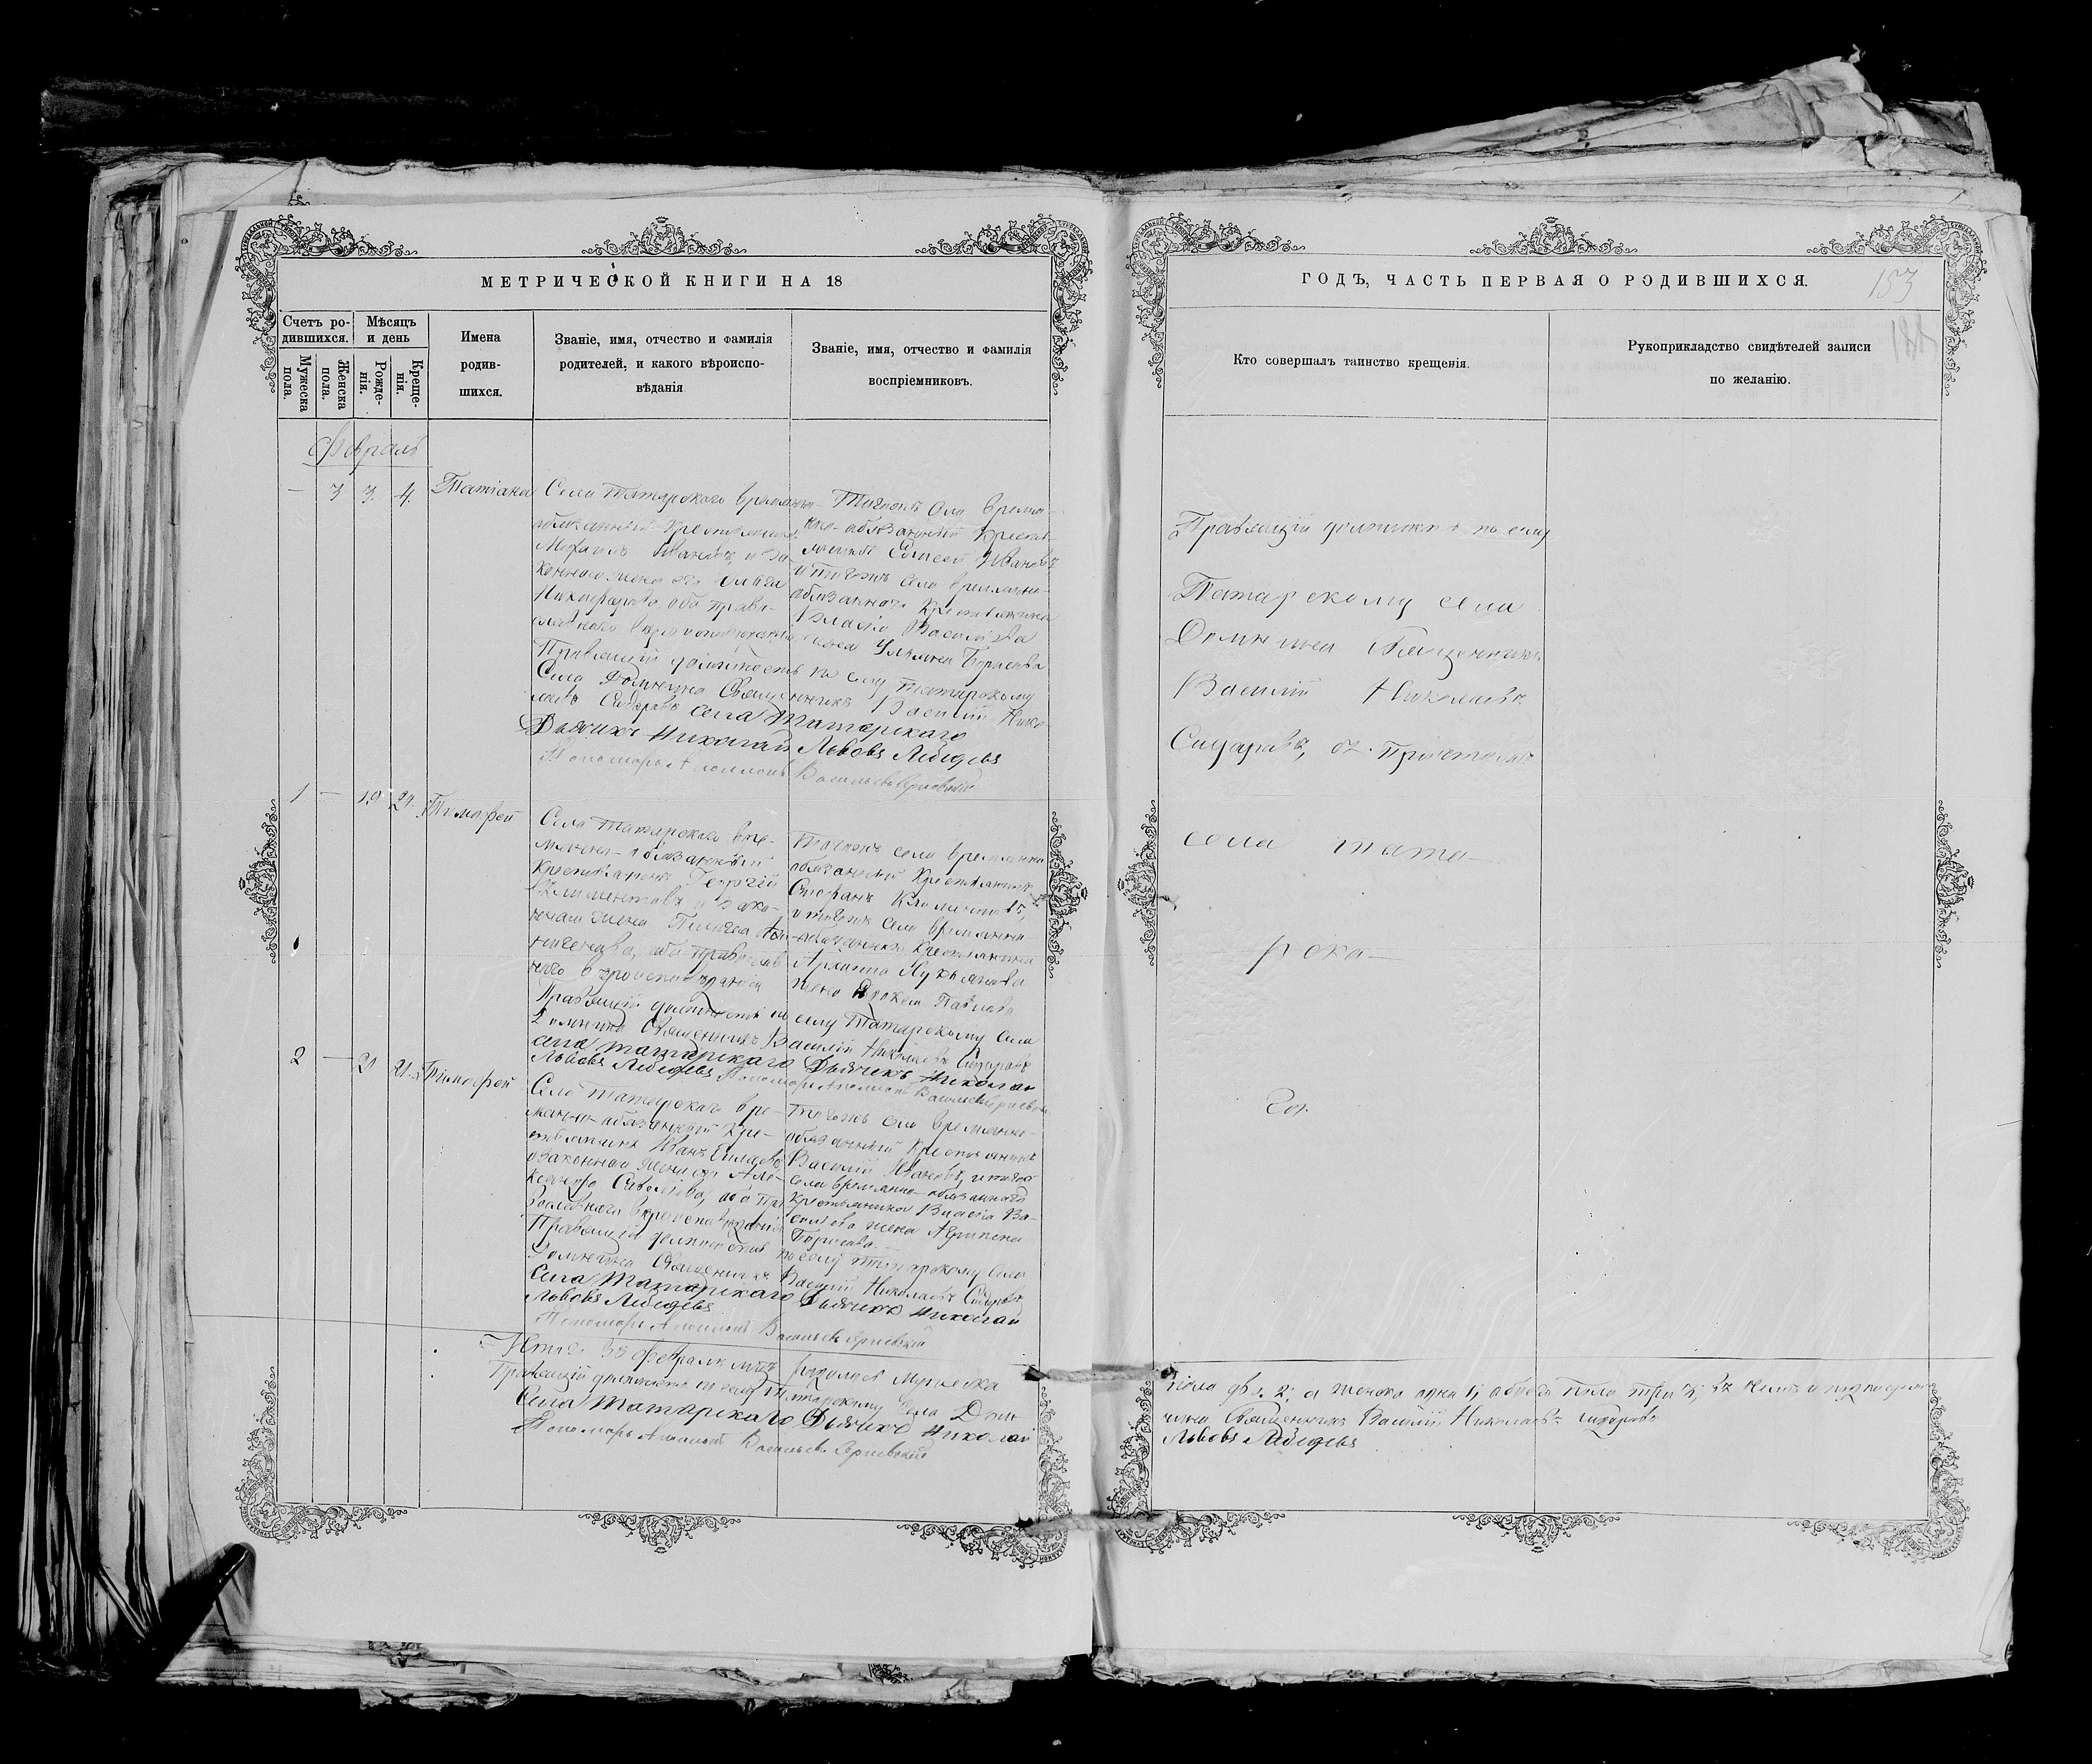 МЕТРИЧЕСКОЙ КНИГИ НА 18
Счетъ ро-
дившихся.
Мѣсяцъ
и день
Мужеска
пола.
Женска
пола.
Рожде-
нія.
Креще-
нія.
Имена
родив-
шихся.
Званіе, имя, отчество и фамилія
родителей, и какого вѣроиспо-
вѣданія
Званіе, имя, отчество и фамилія
воспріемниковъ.
Февраль
— 3 3. 4. Татіана
Села Татарскаго
Михаилъ Ивановъ, и за-
конная жена его Ольга
Никифорова оба право-
славнаго вѣроисповѣданія
Тогожъ села времен-
но-обязанный Кресть-
янинъ Елисей Ивановъ
и тогожъ села временно-
обязаннаго Крестьянина
Власія Васильева
жена Ульяна Борисова
Правящій должность по селу Татарскому
Села Домнина Священникъ Василій Нико-
лаевъ Сидоровъ села Татарскаго
Дьячекъ Николай Львовъ Лебедевъ
Пономарь Аполлонъ Васильевъ
1 — 19 21. Тимофей
Села Татарскаго вре-
менно-обязанный
Крестьянинъ Георгій
Климентовъ и зако-
нная жена Пелагея
оба православ
наго вѣроисповѣданія
Тогожъ села временно
обязанный Крестьянинъ
Стефанъ Климентовъ,
и тогожъ села временно
-обязаннаго Крестьянина
Архиппа Лукьянова
жена Павлова
Правящій должность по селу Татарскому села
Домнина Священникъ Василій Николаевъ Сидоровъ
села Татарскаго Дьячекъ Николай
Львовъ Лебедевъ Пономарь Аполлонъ Васильевъ
2 — 21 21. Тимофей
Села Татарскаго вре-
менно-обязанный Кре-
стьянинъ Иванъ
и законная жена его Але-
ксандра Савельева, оба Пра
вославнаго вѣроисповѣданія
Тогожъ села временно-
обязанный Крестьянинъ
Василій Ивановъ, и тогожъ
села временно-обязаннаго
Крестьянина Власія Ва-
сильева жена Агрипена
Борисова.
Правящій должность по селу Татарскому Села
Домнина Священникъ Василій Николаевъ Сидоровъ
Села Татарскаго Дьячекъ Николай
Львовъ Лебедевъ
Пономарь Аполлонъ Васильевъ
Итого въ февралѣ мѣсяцѣ родилось мужеска
Правящій должность по селу Татарскому Села Домн
Села Татарскаго Дьячекъ Николай
Пономарь Аполлонъ Васильевъ
ГОДЪ, ЧАСТЬ ПЕРВАЯ О РОДИВШИХСЯ.
153
Кто совершалъ таинство крещенія.
Рукоприкладство свидѣтелей записи
по желанію.
Правящій должность по селу
Татарскому села
Домнина Священникъ
Василій Николаевъ
Сидоровъ, съ причтомъ
села Тата-
рска-
го.
пола два 2; а женска одна 1; обоего пола три 3; въ чемъ и подписуемся
нина Священникъ Василій Николаевъ Сидоровъ
Львовъ Лебедевъ